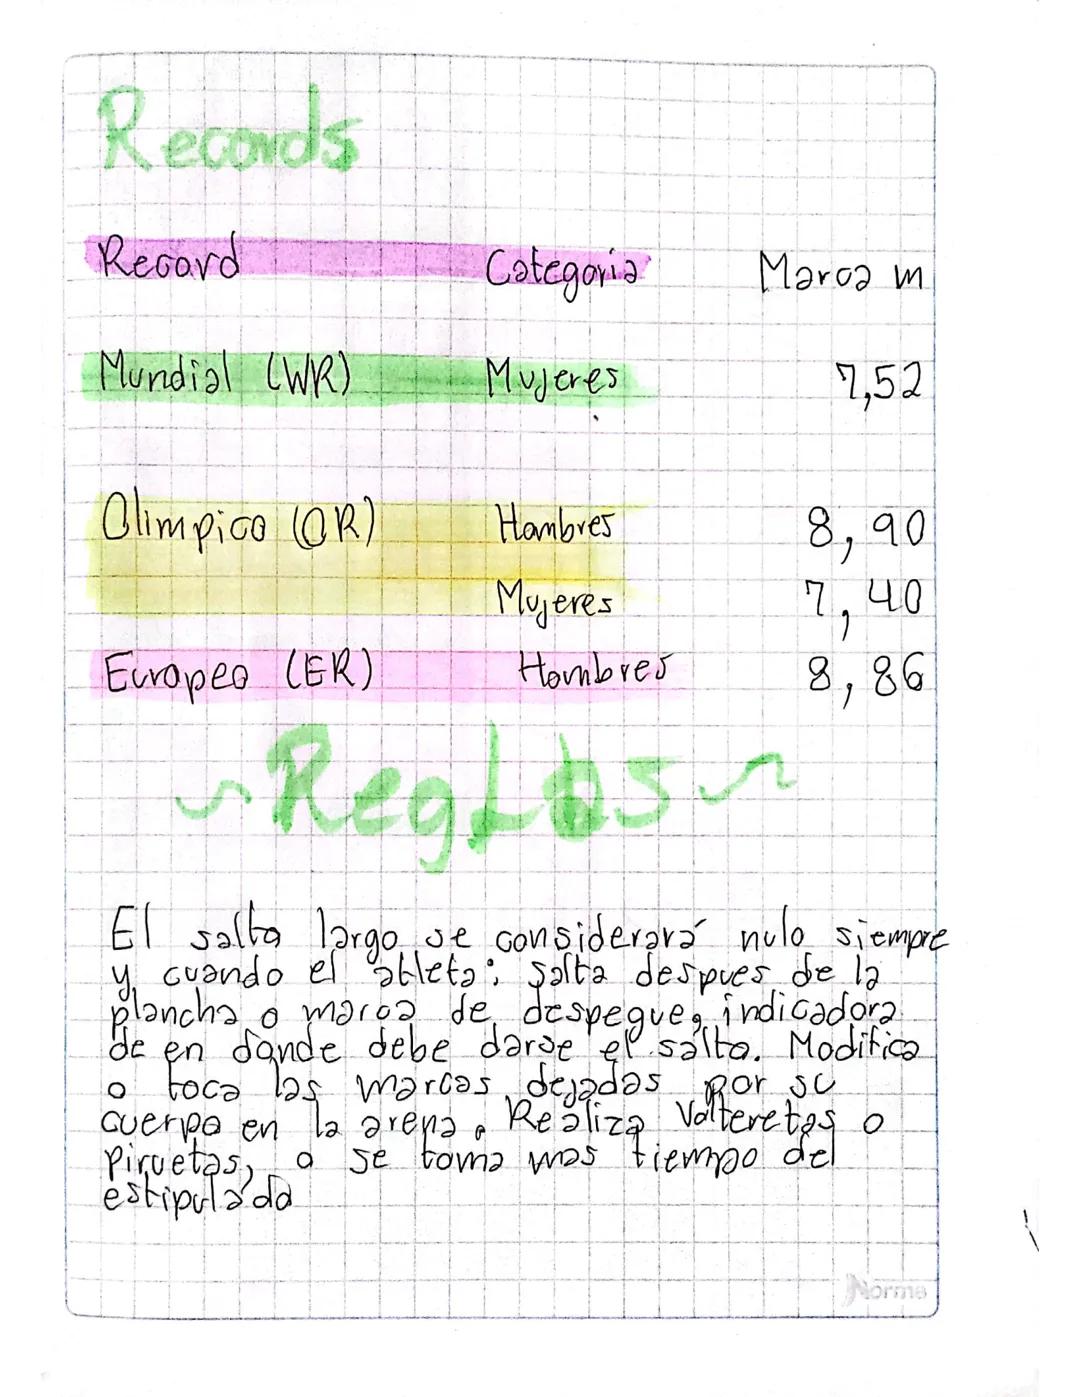 Records
Record Categoria Marca m
Mundial (WR) Mujeres 7,52
Olimpico (OR) Hombres 8,90
Mujeres 7,40
Europeo (ER) Hombres 8,86
~Reglas~
El salto largo se considerará nulo siempre
y cuando el atleta: Salta despues de la
plancha o marca de despegue, indicadora
de en donde debe darse el salto. Modifica
o toca las marcas dejadas por su
cuerpo en la arena. Realiza Volteretas o
Piruetas, o se toma mas tiempo del
estipulado
Norma